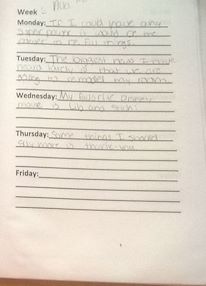 Week
Monday: If I could have any
super power it would be me
Tuesday: The biggest news I have
heard lately is that we are
going to remodel my room
Wednesday: My favorite Disney
movie is Lilo and Stich
Thursday: Some things I should
say more is thank you
Friday: